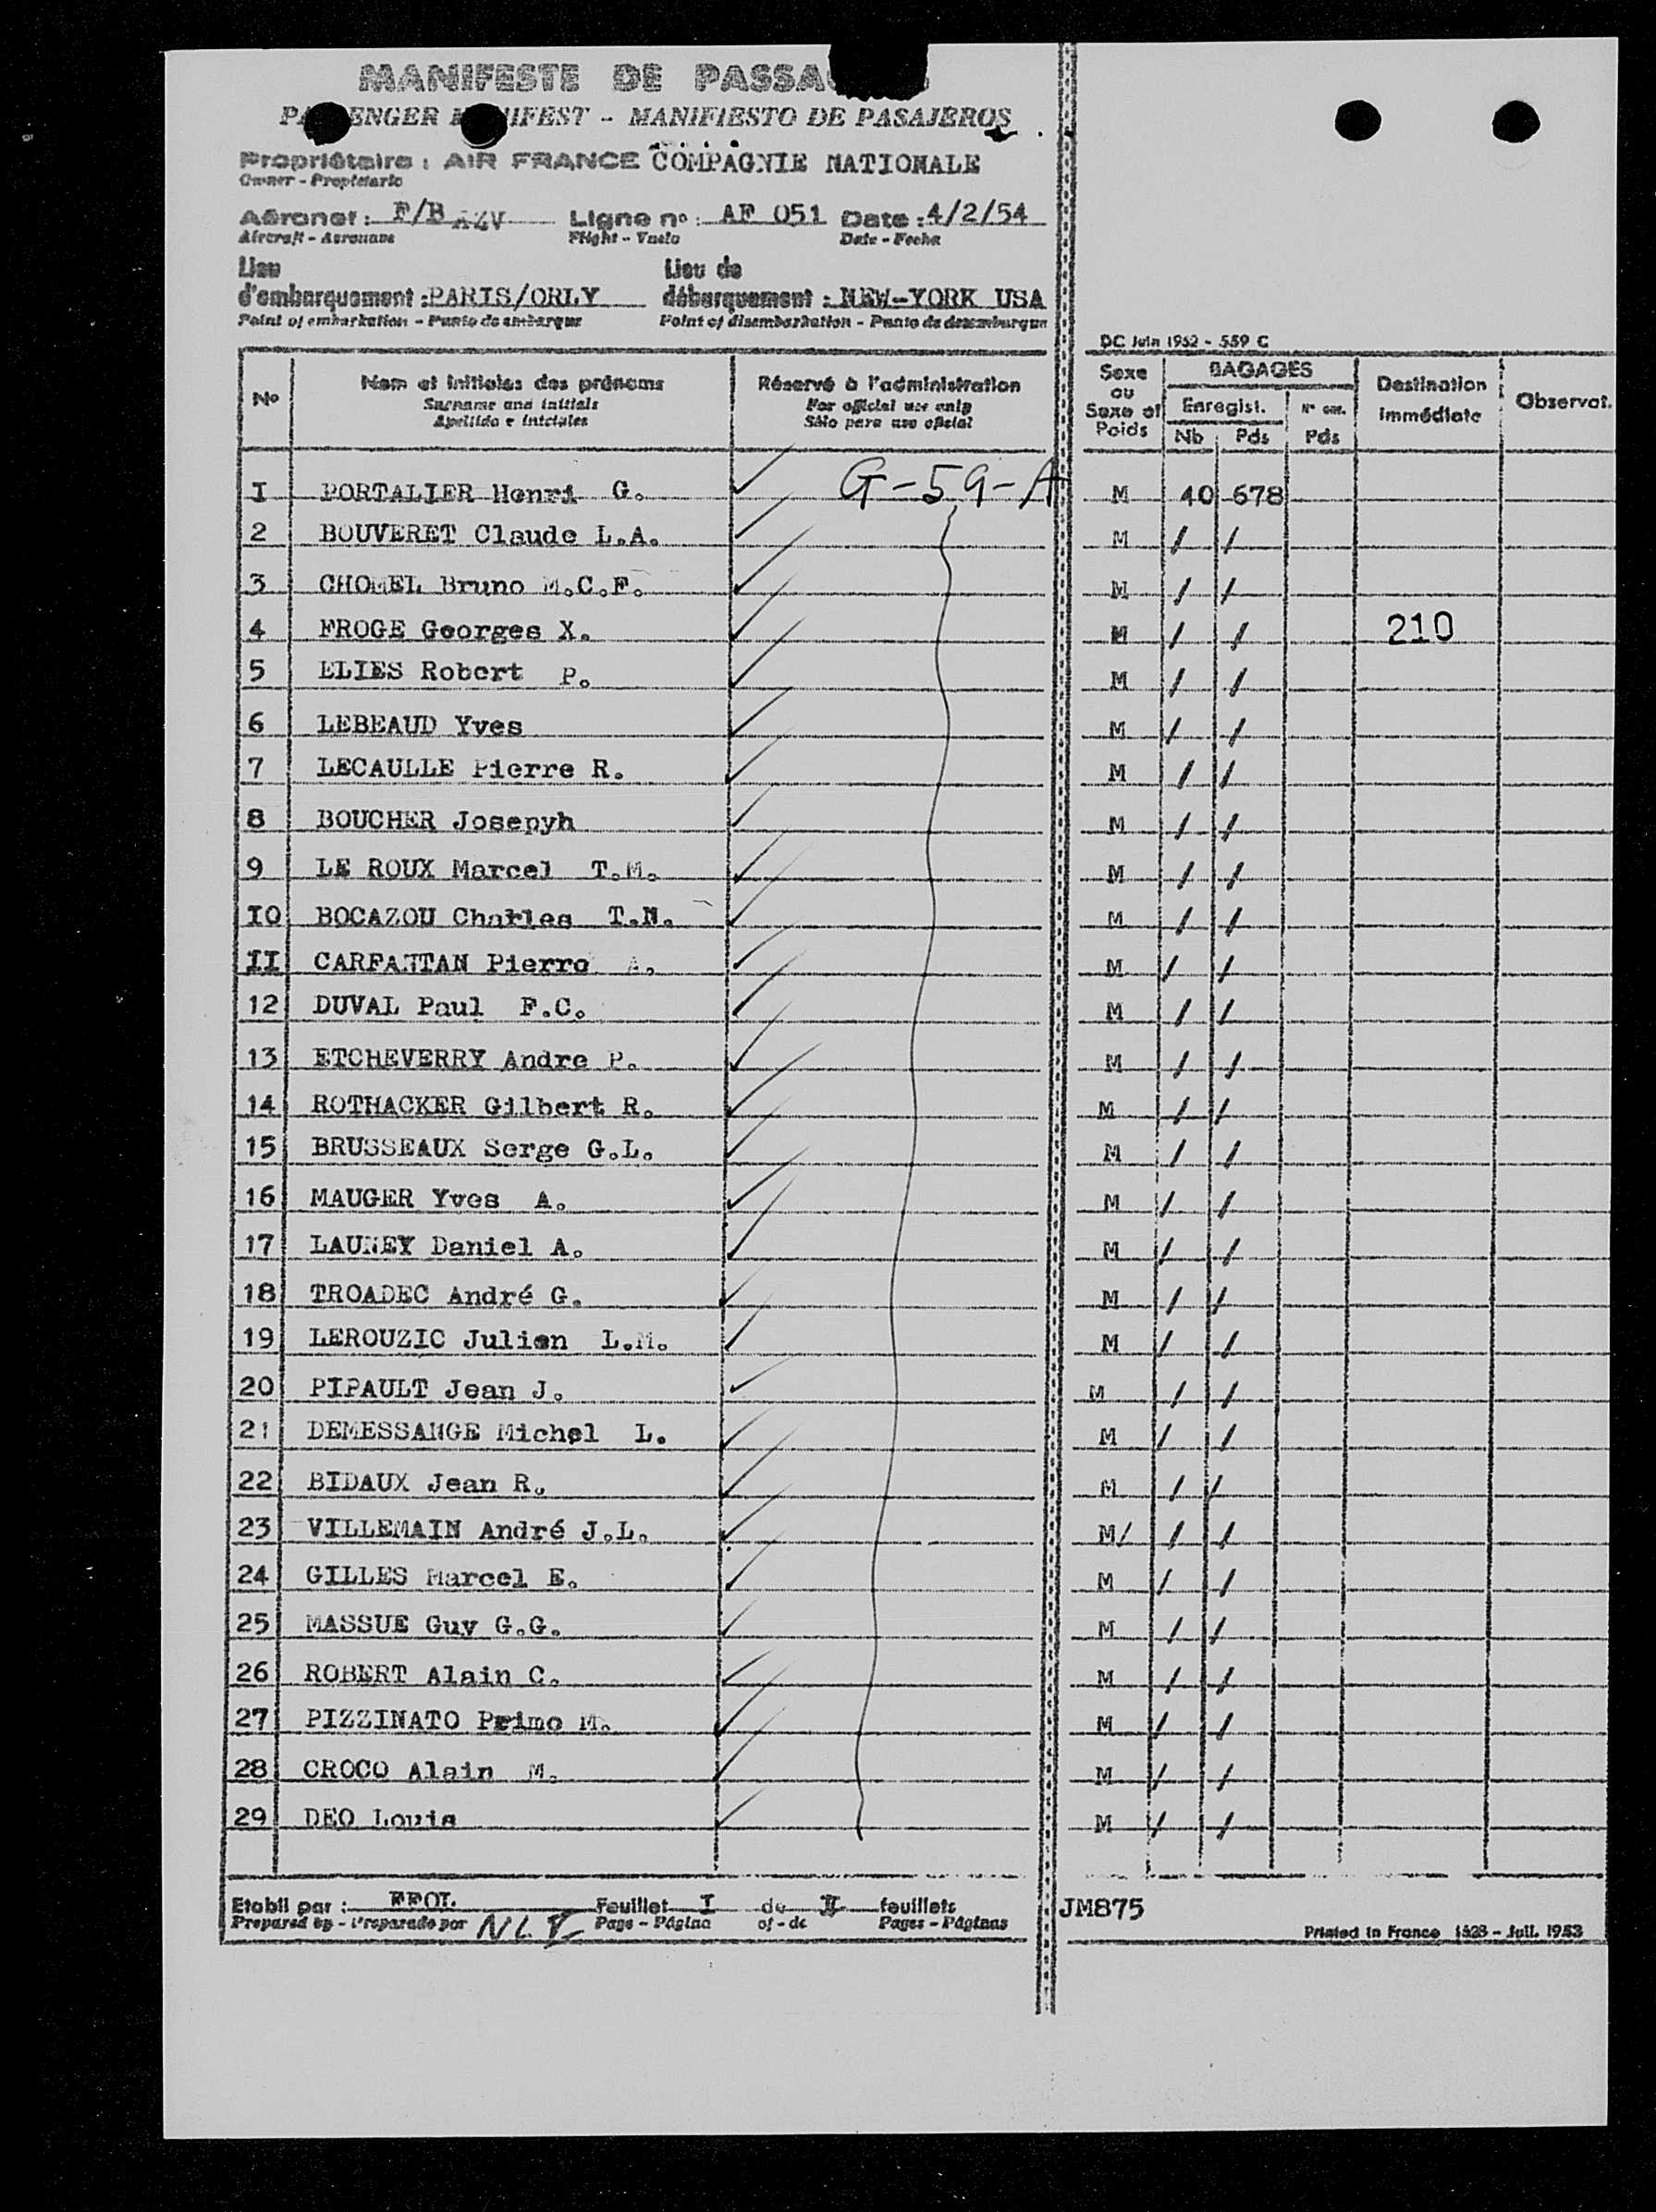 MANIFESTE DE
MANIFIESTO DE PASAJEROS
Propriétaire : AIR FRANCE COMPAGNIE NATIONALE
Owner - Propietario
Aéronef : F/B AZV Ligne n° : AF 051 Date : 4/2/54
Aircraft - Aeronave Flight - Vuelo Date - Fecha
Lieu Lieu de
d'embarquement : PARIS/ORLY débarquement : NEW-YORK USA
Point of embarkation - Punto de embarque Point of disembarkation - Punto de desembarque
DC Juin 1952 - 559 C
N° Nom et initiales des prénoms Réservé à l'administration Sexe ou Sexe et Poids BAGAGES Destination immédiate Observat.
Surname and initials For official use only Enregist.
Apellido e iniciales Sólo para uso oficial Nb Pds Pds
I PORTALIER Henri G. G-59-A M 40 678
2 BOUVERET Claude L.A. M / /
3 CHOMEL Bruno M.C.F. M / /
4 FROGE Georges X. M / / 210
5 ELIES Robert P. M / /
6 LEBEAUD Yves M / /
7 LECAULLE Pierre R. M / /
8 BOUCHER Josepyh M / /
9 LE ROUX Marcel T.M. M / /
IO BOCAZOU Charles T.N. M / /
II CARFANTAN Pierre A. M / /
12 DUVAL Paul F.C. M / /
13 ETCHEVERRY Andre P. M / /
14 ROTHACKER Gilbert R. M / /
15 BRUSSEAUX Serge G.L. M / /
16 MAUGER Yves A. M / /
17 LAUNEY Daniel A. M / /
18 TROADEC André G. M / /
19 LEROUZIC Julien L.M. M / /
20 PIPAULT Jean J. M / /
21 DEMESSANGE Michel L. M / /
22 BIDAUX Jean R. M / /
23 VILLEMAIN André J.L. M/ / /
24 GILLES Marcel E. M / /
25 MASSUE Guy G.G. M / /
26 ROBERT Alain C. M / /
27 PIZZINATO Primo M. M / /
28 CROCO Alain M. M / /
29 DEO Louis M / /
Etabli par : Feuillet I de II feuillets JM875
Prepared by - Preparado por Page - Página of - de Pages - Páginas
Printed in France - Juil. 1953